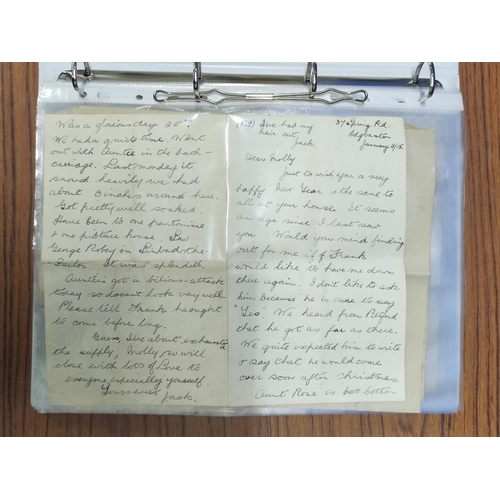 37 Spring Rd.
Edgbaston
January 11/15
(P.S) I've had my
hair cut.
Jack.
Dear Molly.
Just to wish you a very
happy New Year & the same to
all at your house. It seems
an age since I last saw
you. Would you mind finding
out for me if Frank
would like to have me down
there again. I don't like to ask
him because he is sure to say
"Yes." We heard from
that he got as far as there.
We quite expected him to write
& say that he would come
over soon after Christmas
Aunt Rose is not better
Was a glorious day
We had a quiet time. Went
out with Auntie in the bath-
carriage. Last Monday it
snowed heavily we had
about 3 inches around here.
Got pretty well soaked.
Have been to one pantomime
& one picture house. Saw
George Robey in Sinbad the
Sailor. It was splendid.
Auntie's got a bilious attack
today so doesn't look very well.
Please tell Frank he ought
to come before long.
Guess, I've about exhausted
the supply, Molly, so will
close with lots of Love to
everyone especially yourself.
Yours ever
Jack.